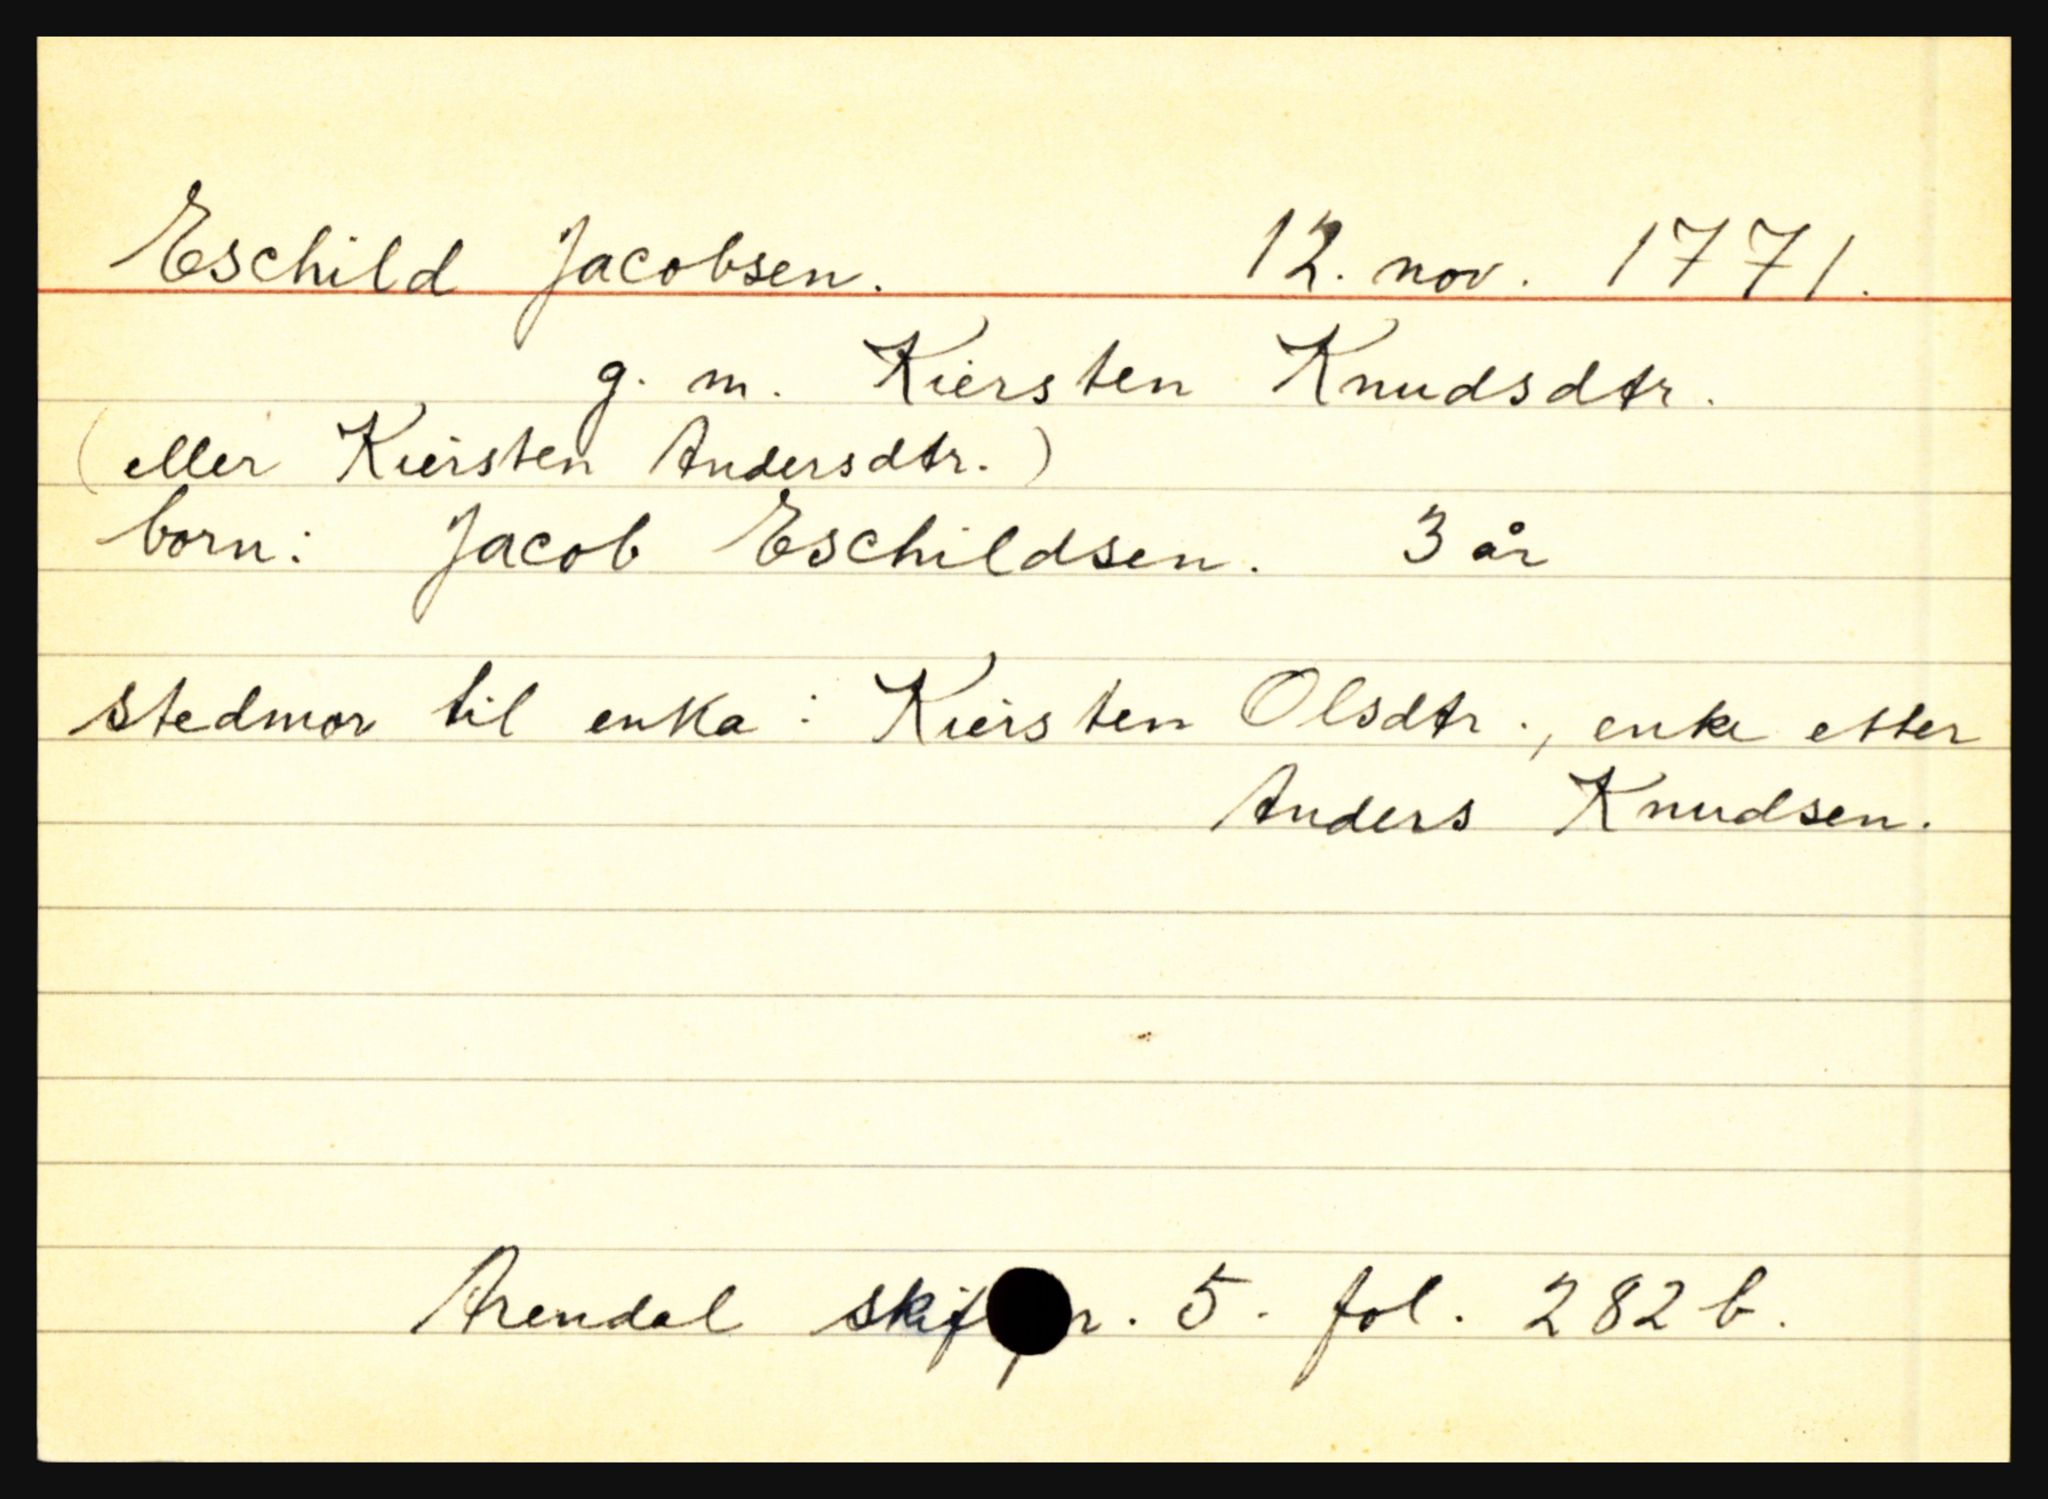 Eschild Jacobsen. 12. nov. 1771.
g. m. Kiersten Knudsdtr.
(eller Kiersten Andersdtr.)
born: Jacob Eschildsen. 3 år
stedmor til enka: Kiersten Olsdtr., enke etter
Anders Knudsen.
Arendal 5. fol. 282b.